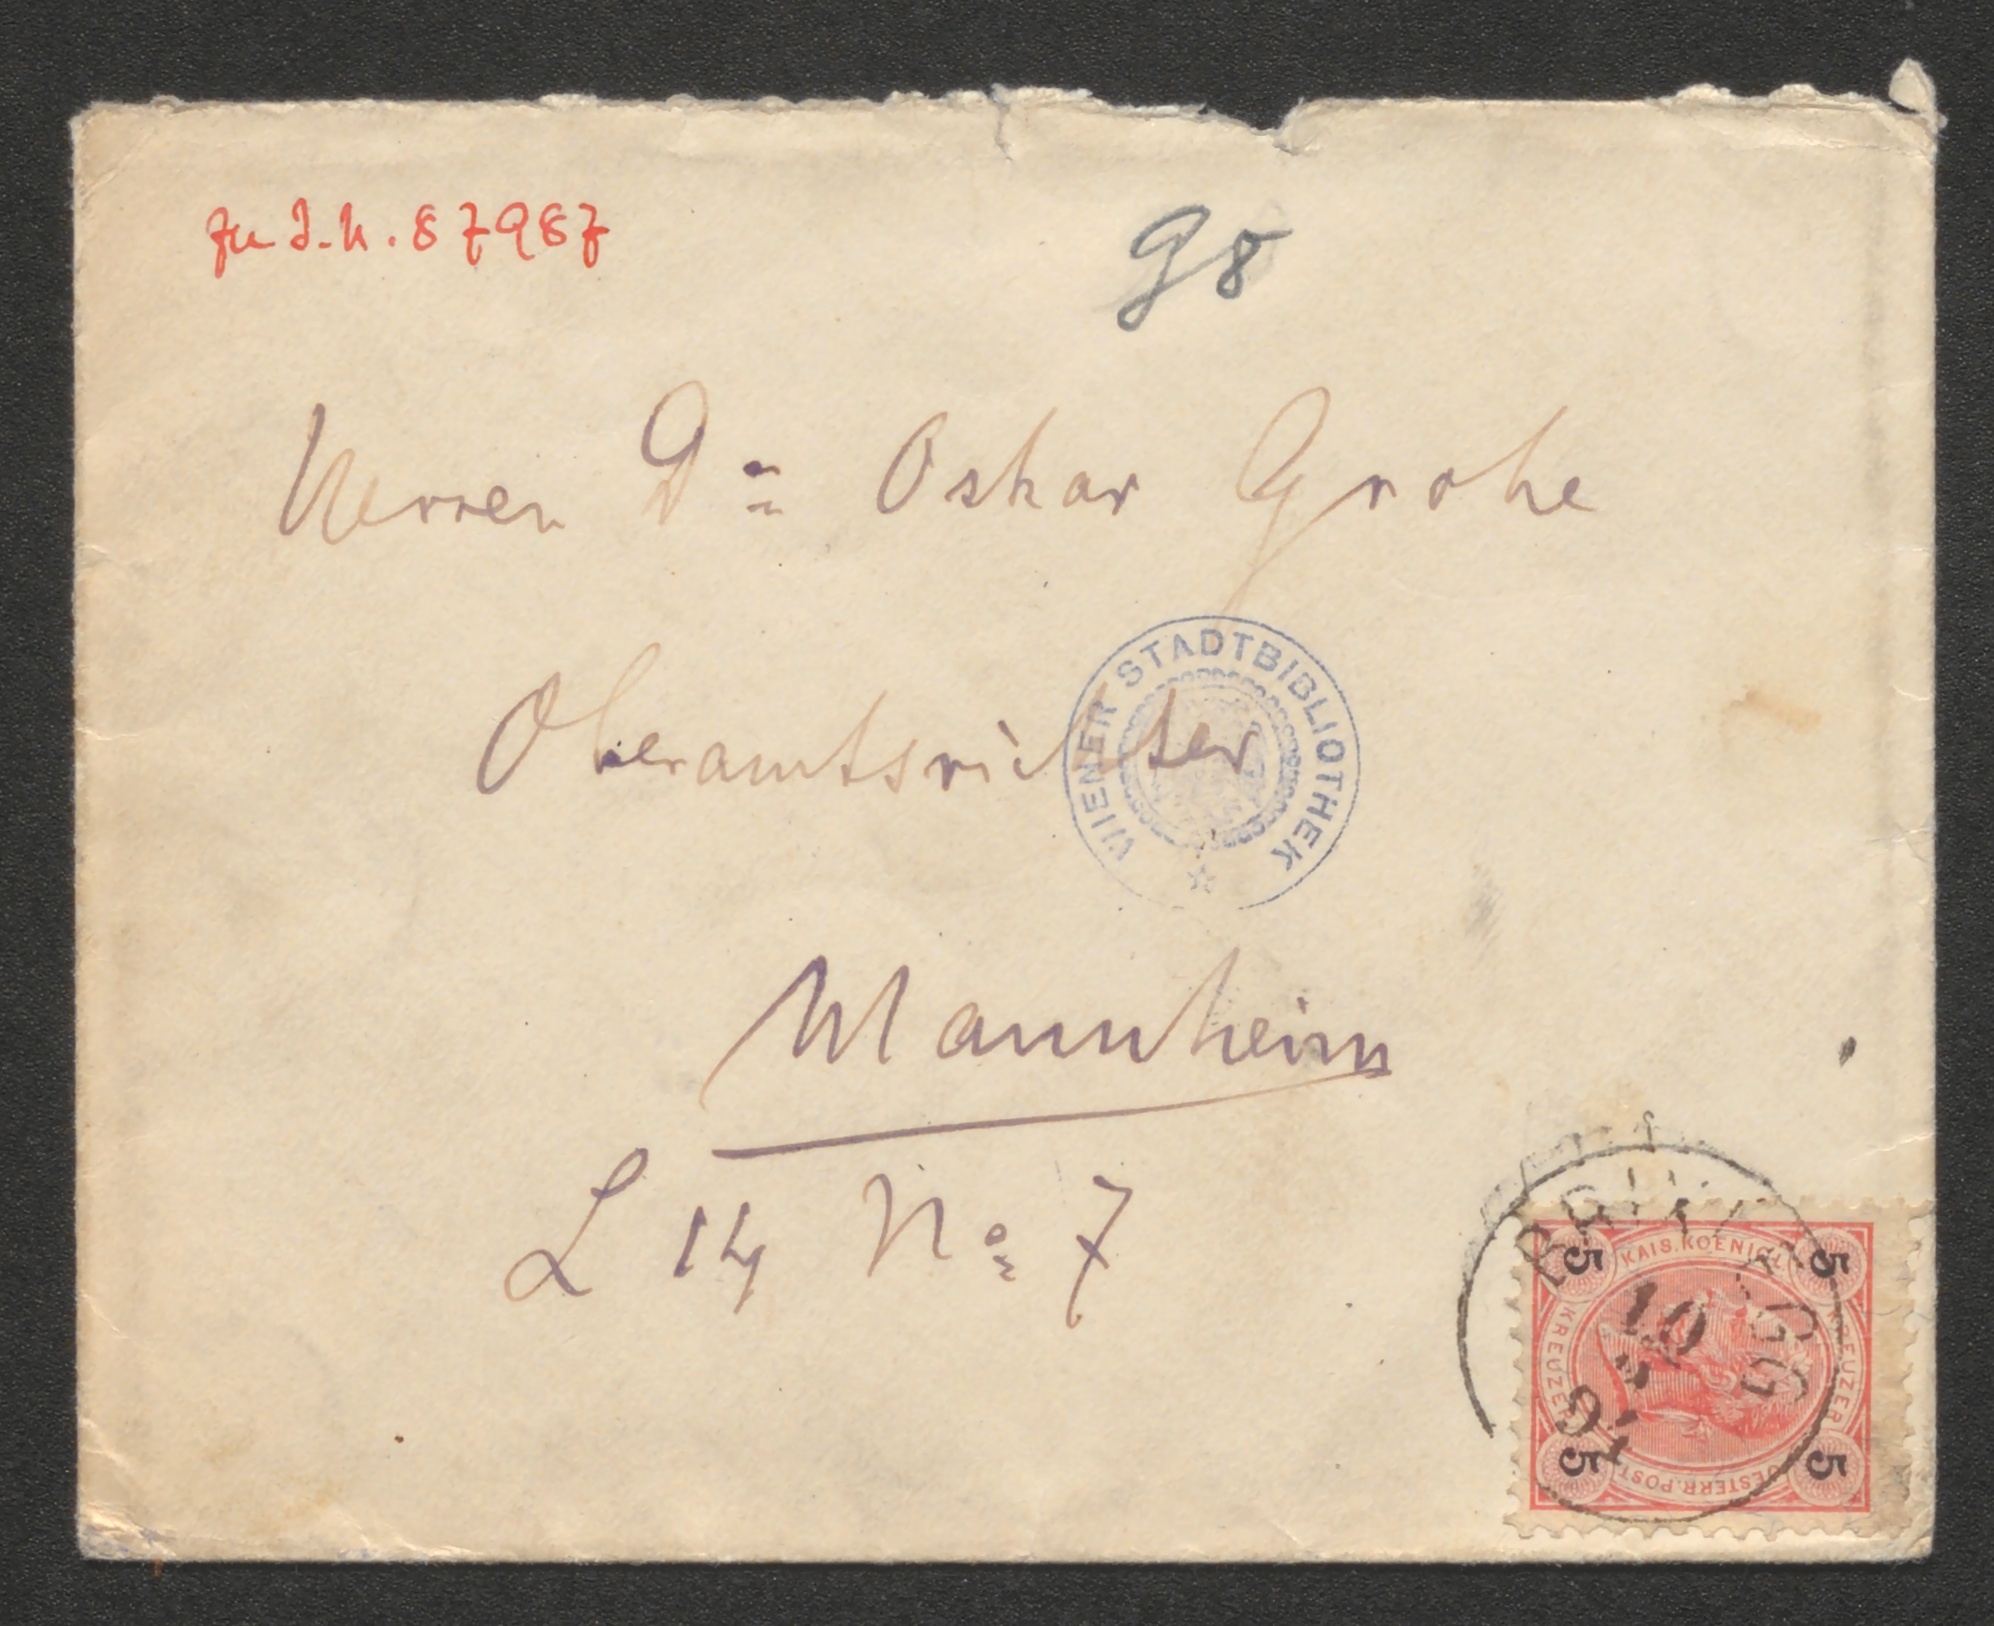 zu I.N. 87987
98
Herrn Dr Oskar Grohe
Oberamtsrichter
WIENER STADTBIBLIOTHEK
Mannheim
L 14 No 7
KAIS. KOENIGL
OESTERR. POST
KREUZER
KREUZER
5
5
5
5
10